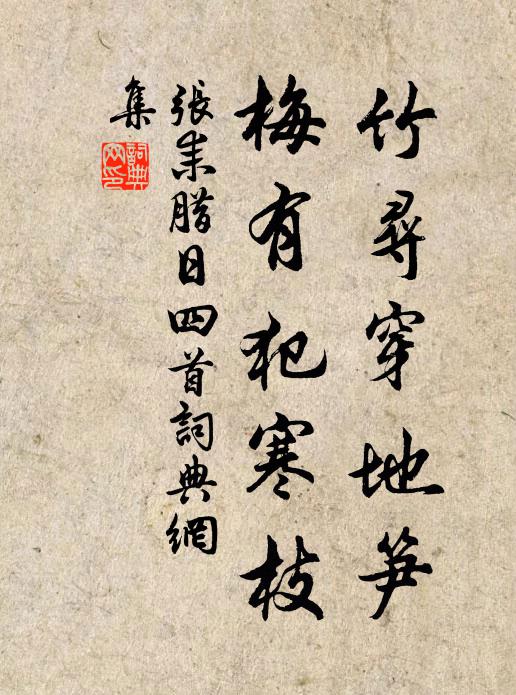 竹尋穿地笋
梅有犯寒枝
張耒腊日四首詞典網
集
詞典
網印